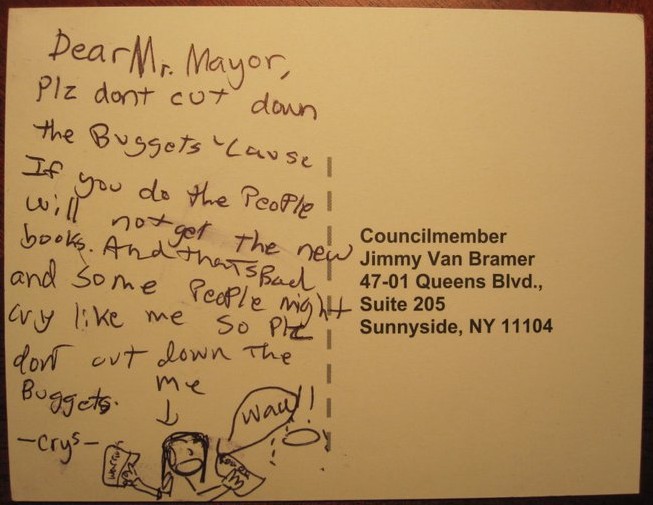 Dear Mr. Mayor,
Plz dont cut down
the Buggets 'Cause
If you do the People
will not get the new
books. And thats Bad
and some People might
cry like me so Plz
dont cut down the
Buggets.
-crys-
me
Waa!!
Councilmember
Jimmy Van Bramer
47-01 Queens Blvd.,
Suite 205
Sunnyside, NY 11104